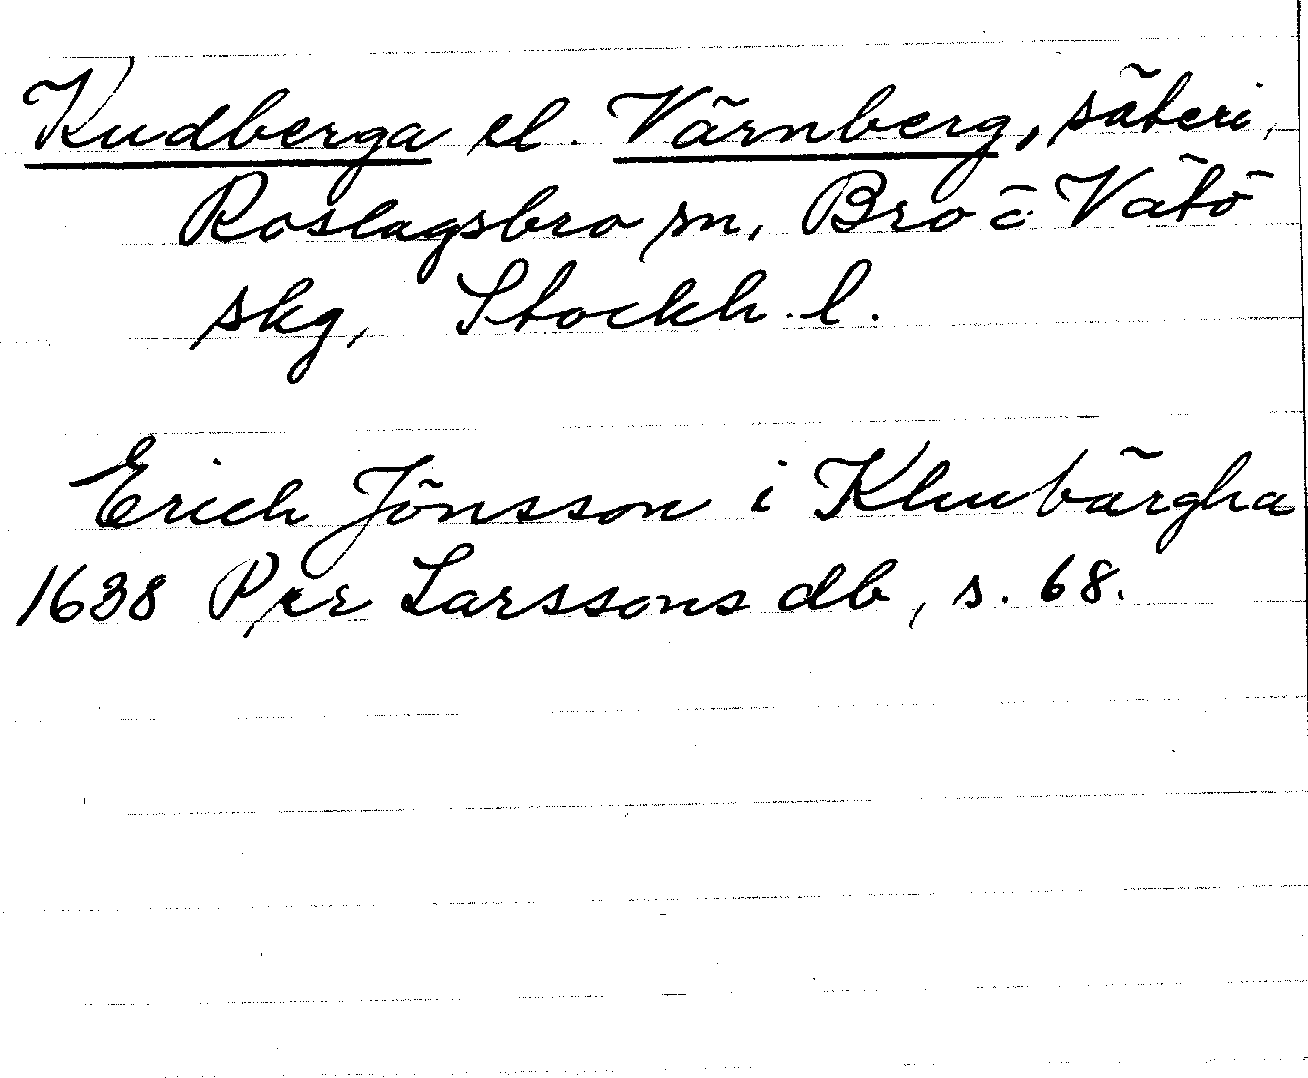 Kudberga el. Värnberg, säteri,
Roslagsbro sn, Bro o Vätö
skg, Stockh. l.
Erich Jönsson i Klubärgha
1638 Per Larssons db, s. 68.